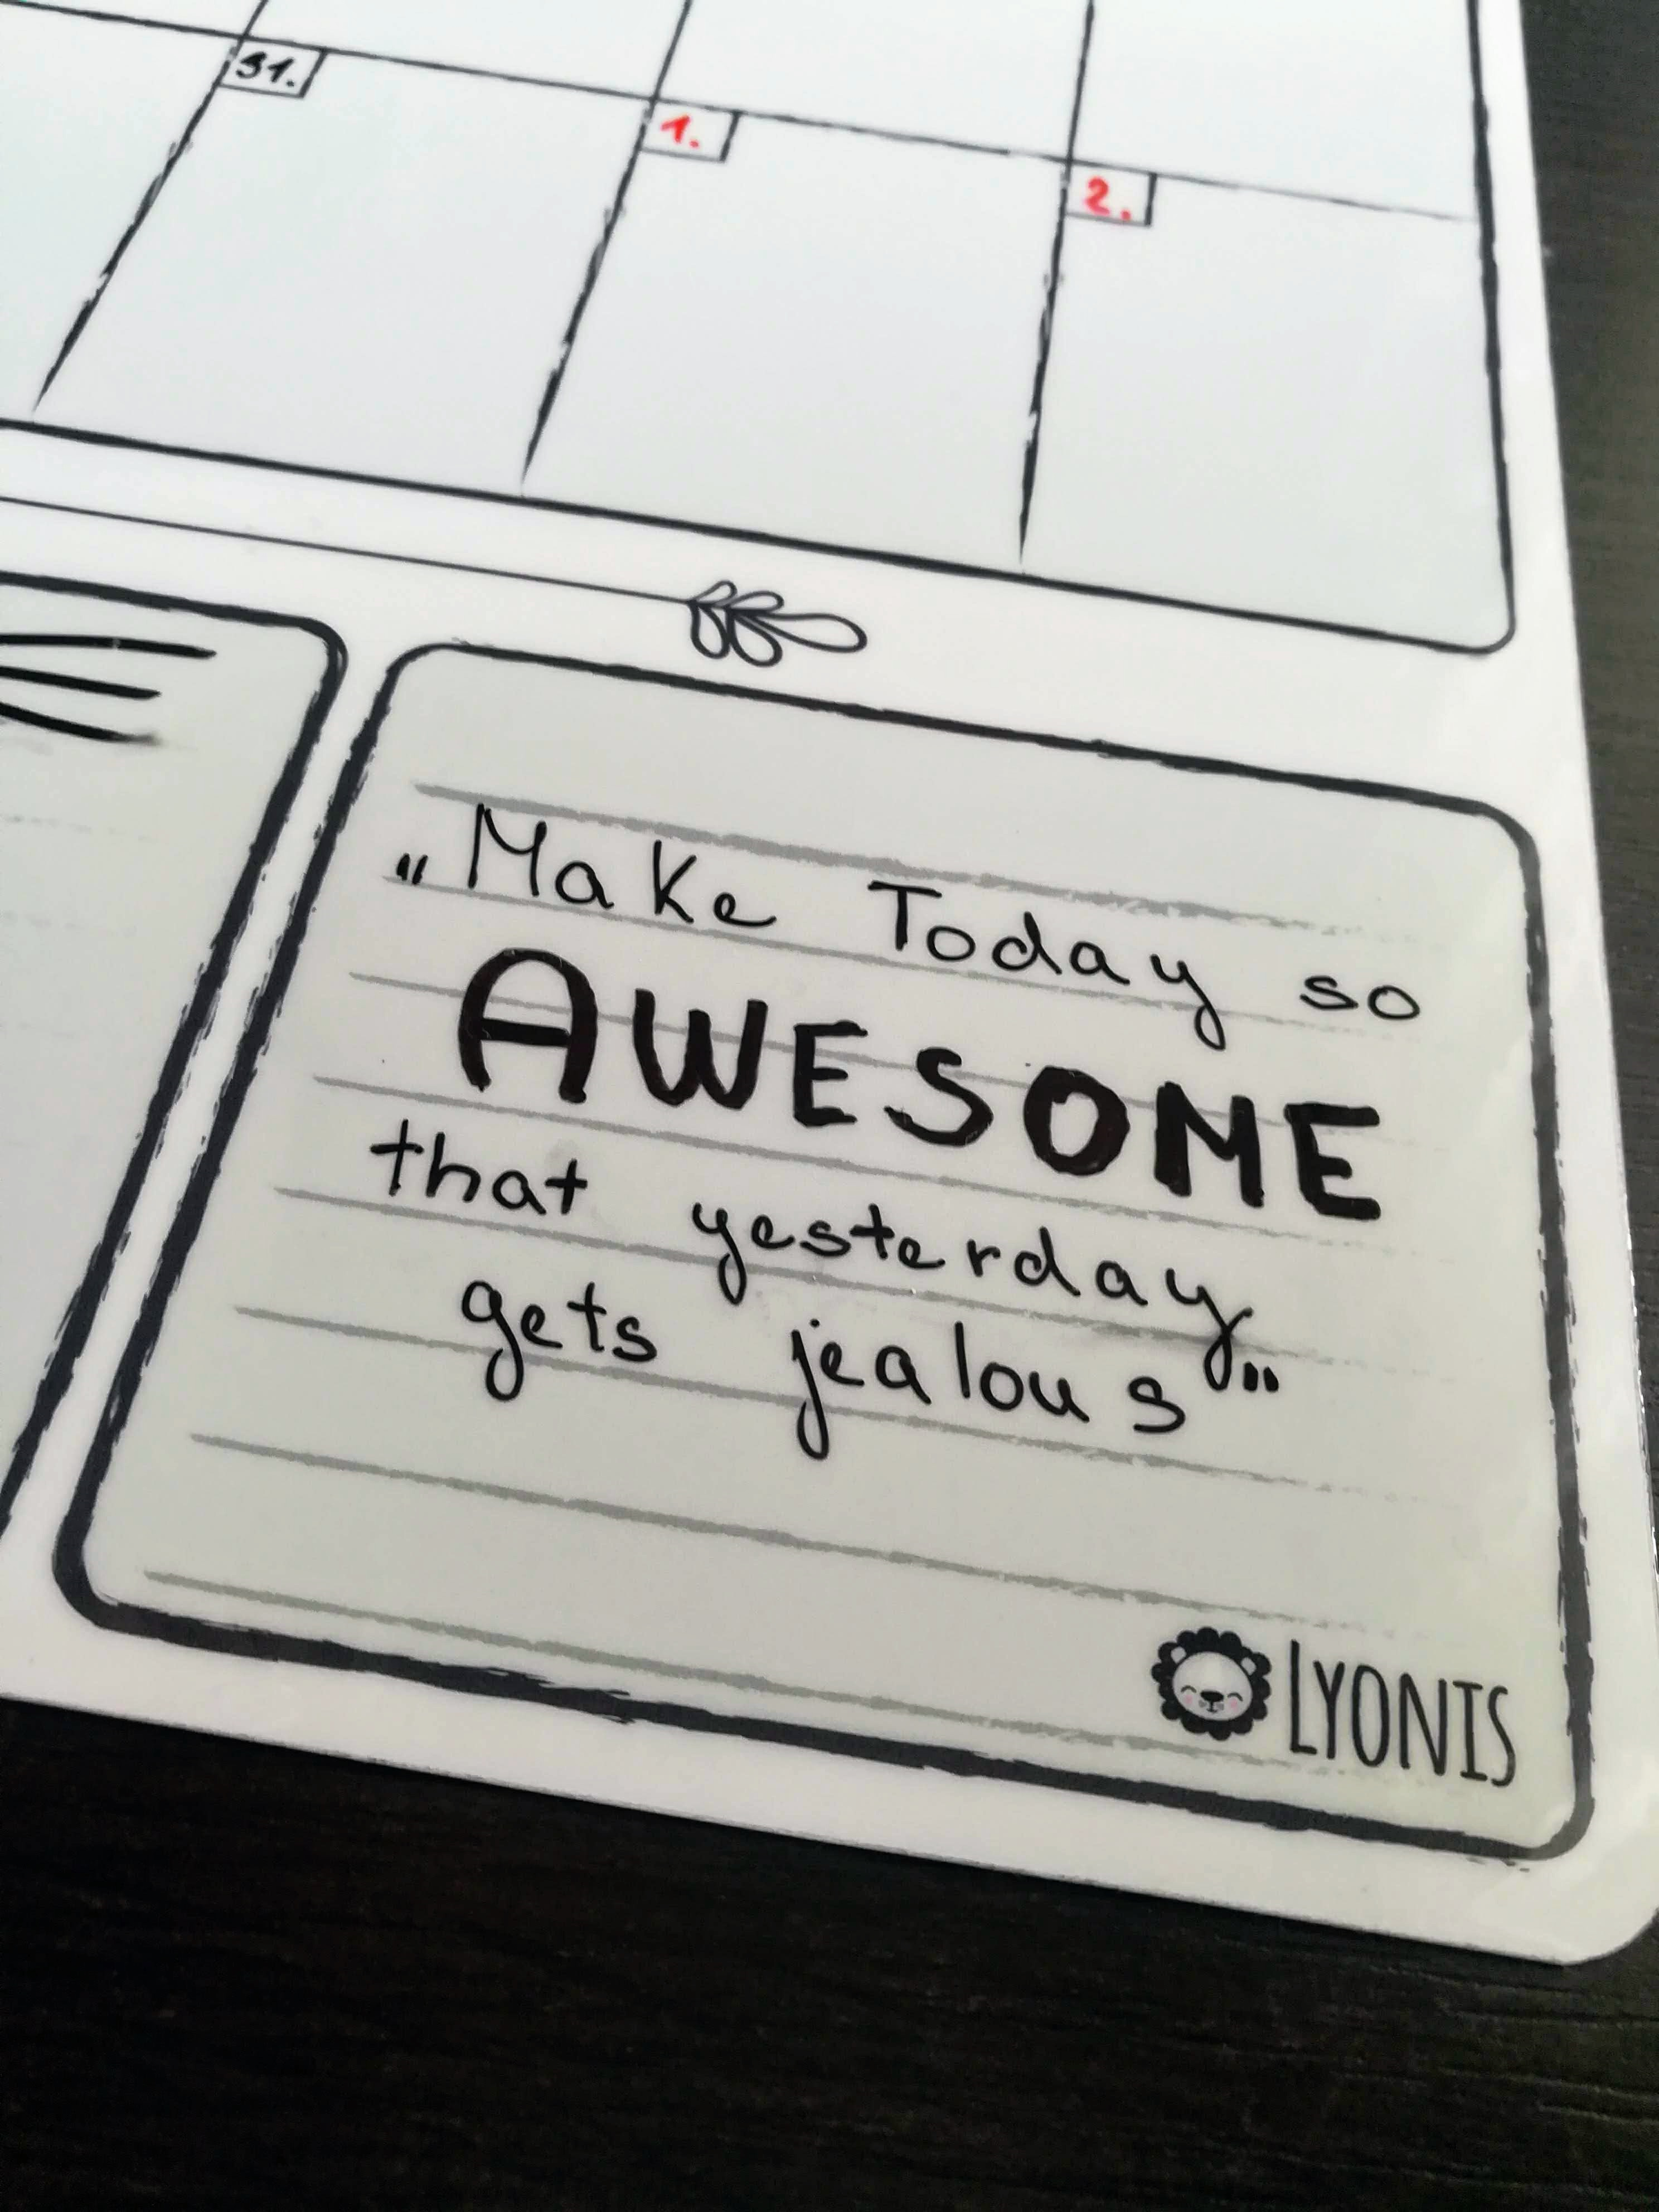 31.
1.
2.
„Make Today so
AWESOME
that yesterday
gets jealous"
LYONIS